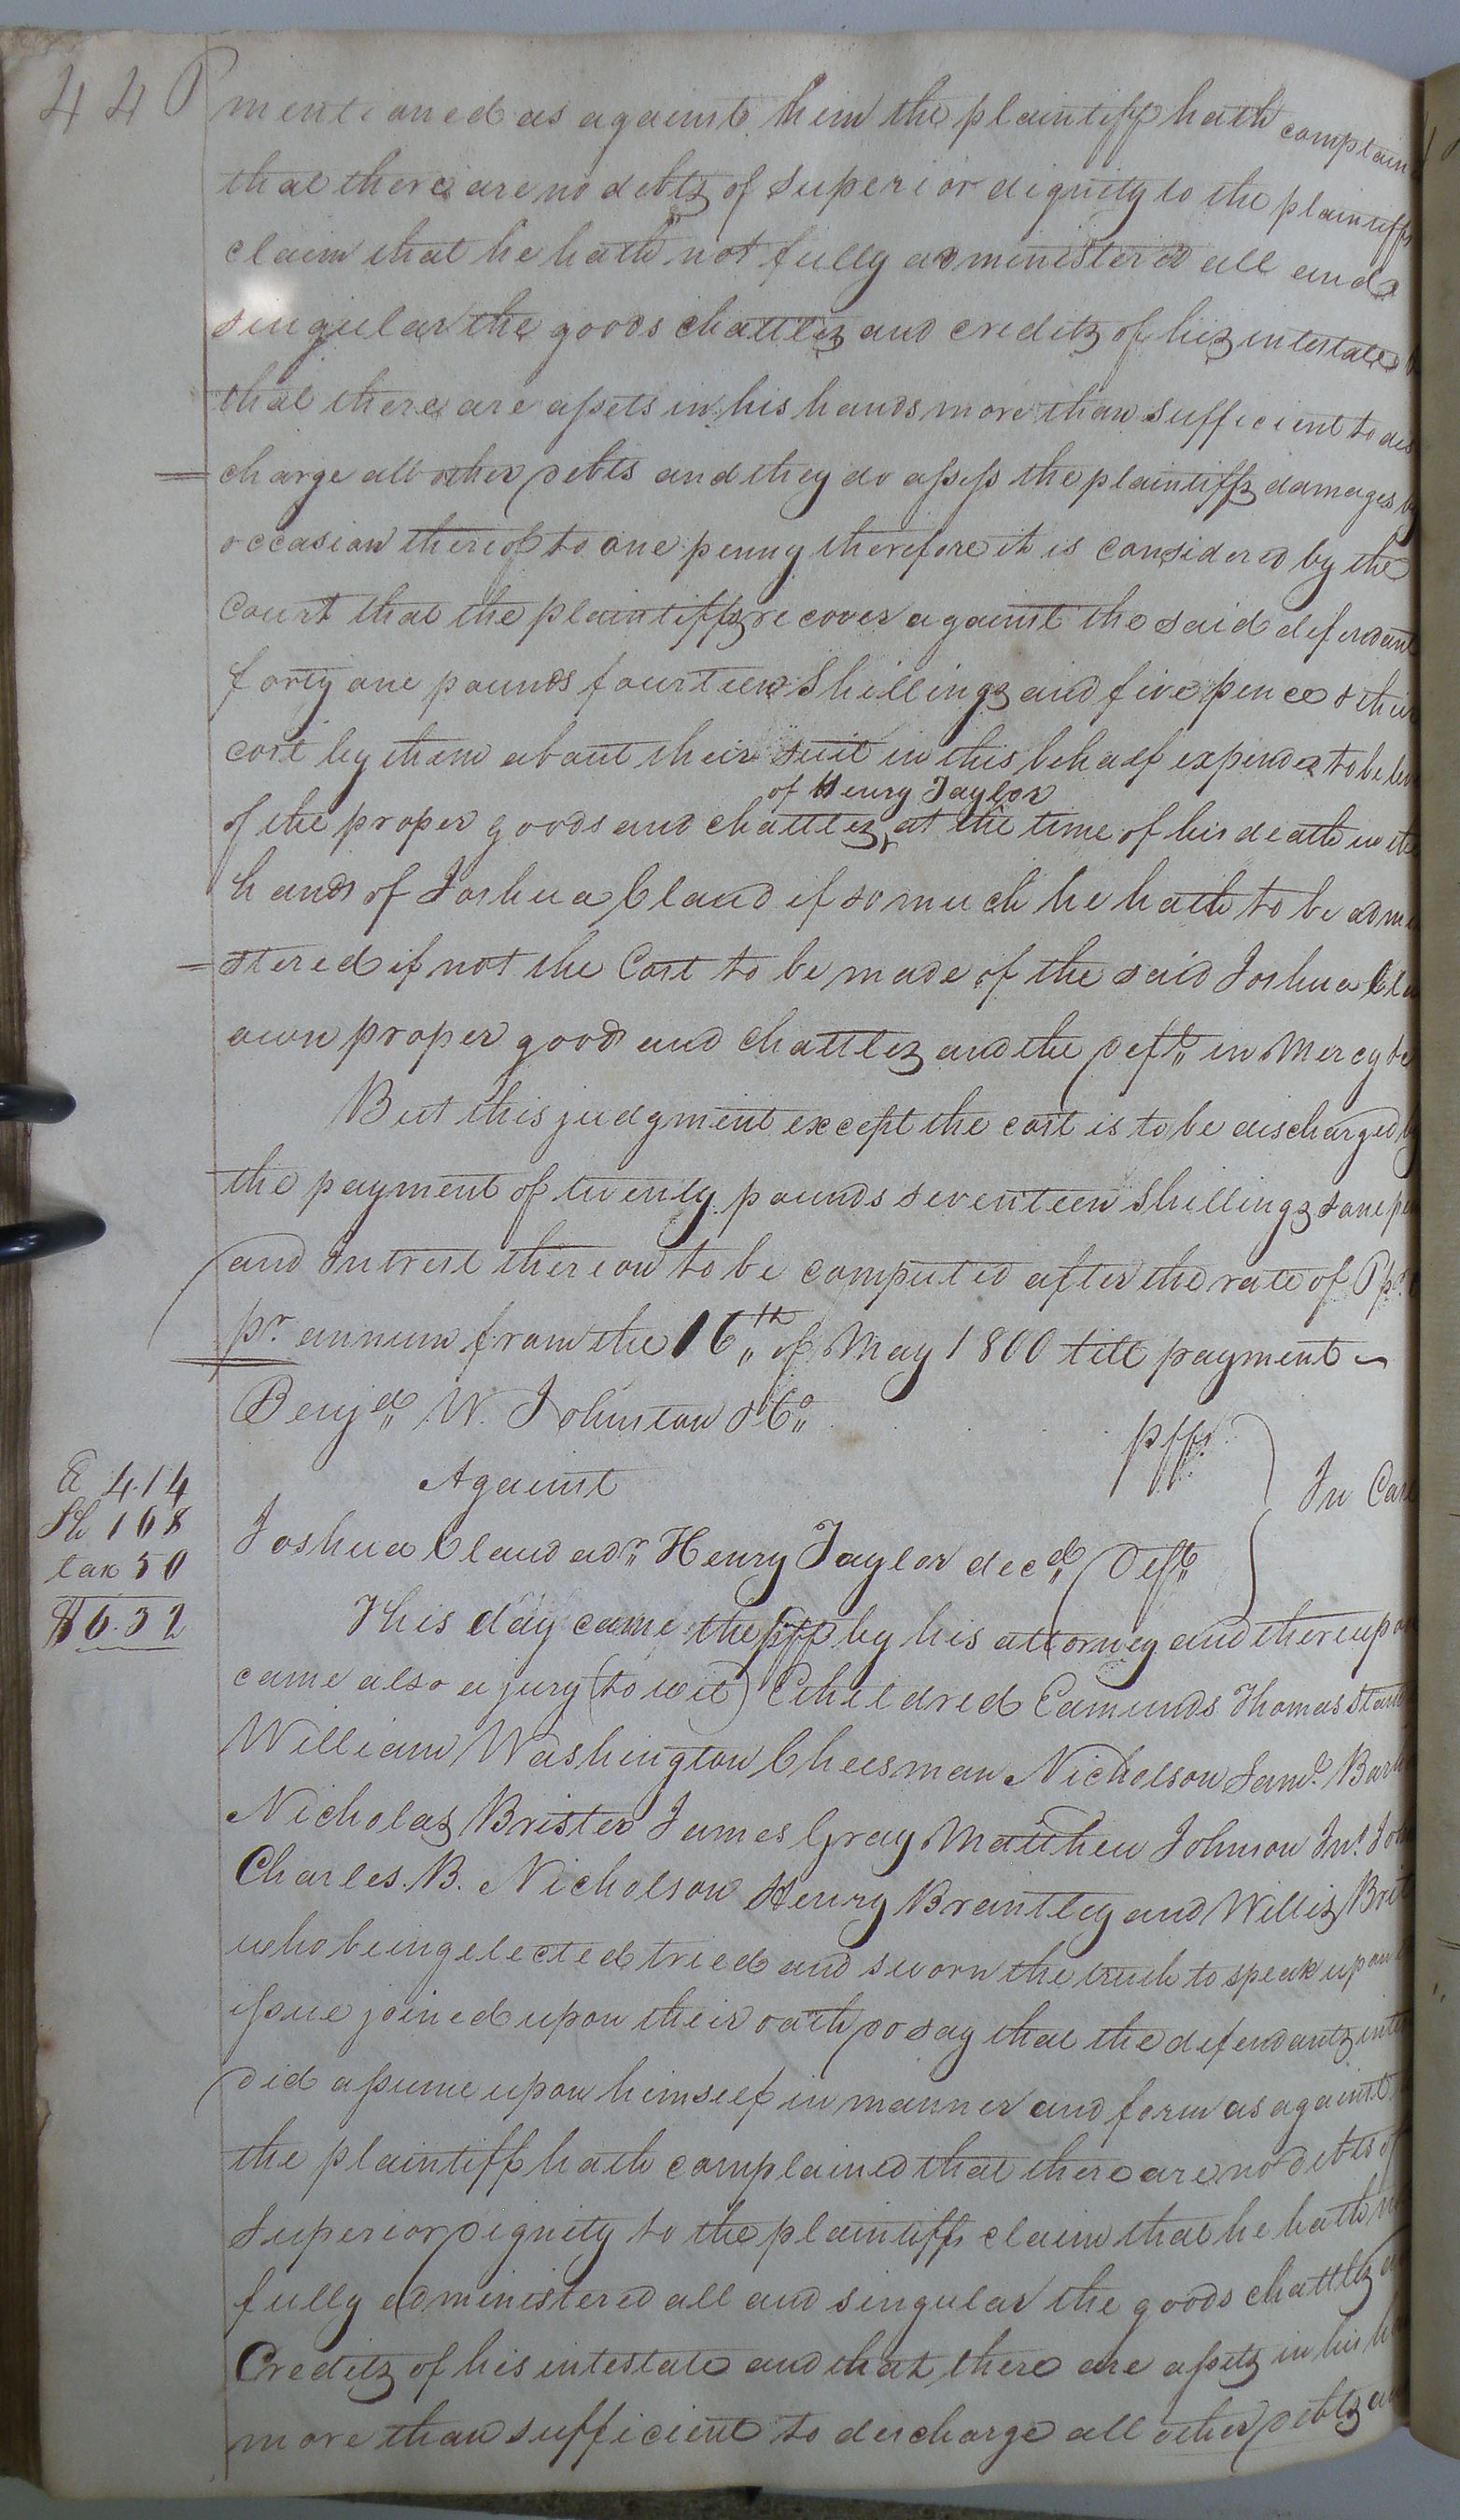 44
mentioned as against him the plaintiff hath complain
that there are no debts of superior dignity to the plaintiffs
claim that he hath not fully administered all and
singular the goods chattles and credits of his intestate
that there are assets in his hands more than sufficient to dis
charge all other debts and they do assess the plaintiffs damages by
occasion thereof to one penny therefore it is considered by the
Court that the plaintiffs recover against the said defendant
forty one pounds fourteen Shillings and five pence & their
cost by them about their suit in this behalf expended to be lev
of Henry Taylor
of the proper goods and chattles at the time of his death in the
hands of Joshua Claud if so much he hath to be admi
stered if not the Cost to be made of the said Joshua Cla
own proper goods and chattles and the Deft. in Mercy &c
But this judgment except the cost is to be discharged by
the payment of twenty pounds seventeen Shillings & one pe
and Intrest thereon to be computed after the rate of
pr. annum from the 16th of May 1800 till payment
Benjd. W. Johnston & Co.
plffs.
Against
In Case
Joshua Claud adr. Henry Taylor decd. Deft.
C 4.14
Sh 168
tax 50
$6.32
This day came the plff by his attorney and thereupon
came also a jury (to wit) Childred Edmunds Thomas
William Washington Cheesman Nicholson Saml. Bar
Nicholas Brister James Gray Matthew Johnson Jno. Jo
Charles B. Nicholson Henry Brantley and Willis Brit
who being elected tried and sworn the truth to speak upon
issue joined upon their oath do say that the defendants inte
did assume upon himself in manner and form as against
the plaintiff hath complained that there are no debts of
Superior dignity to the plaintiffs claim that he hath no
fully administered all and singular the goods chattles a
Credits of his intestate and that there are assets in his ha
more than sufficient to discharge all other debts an